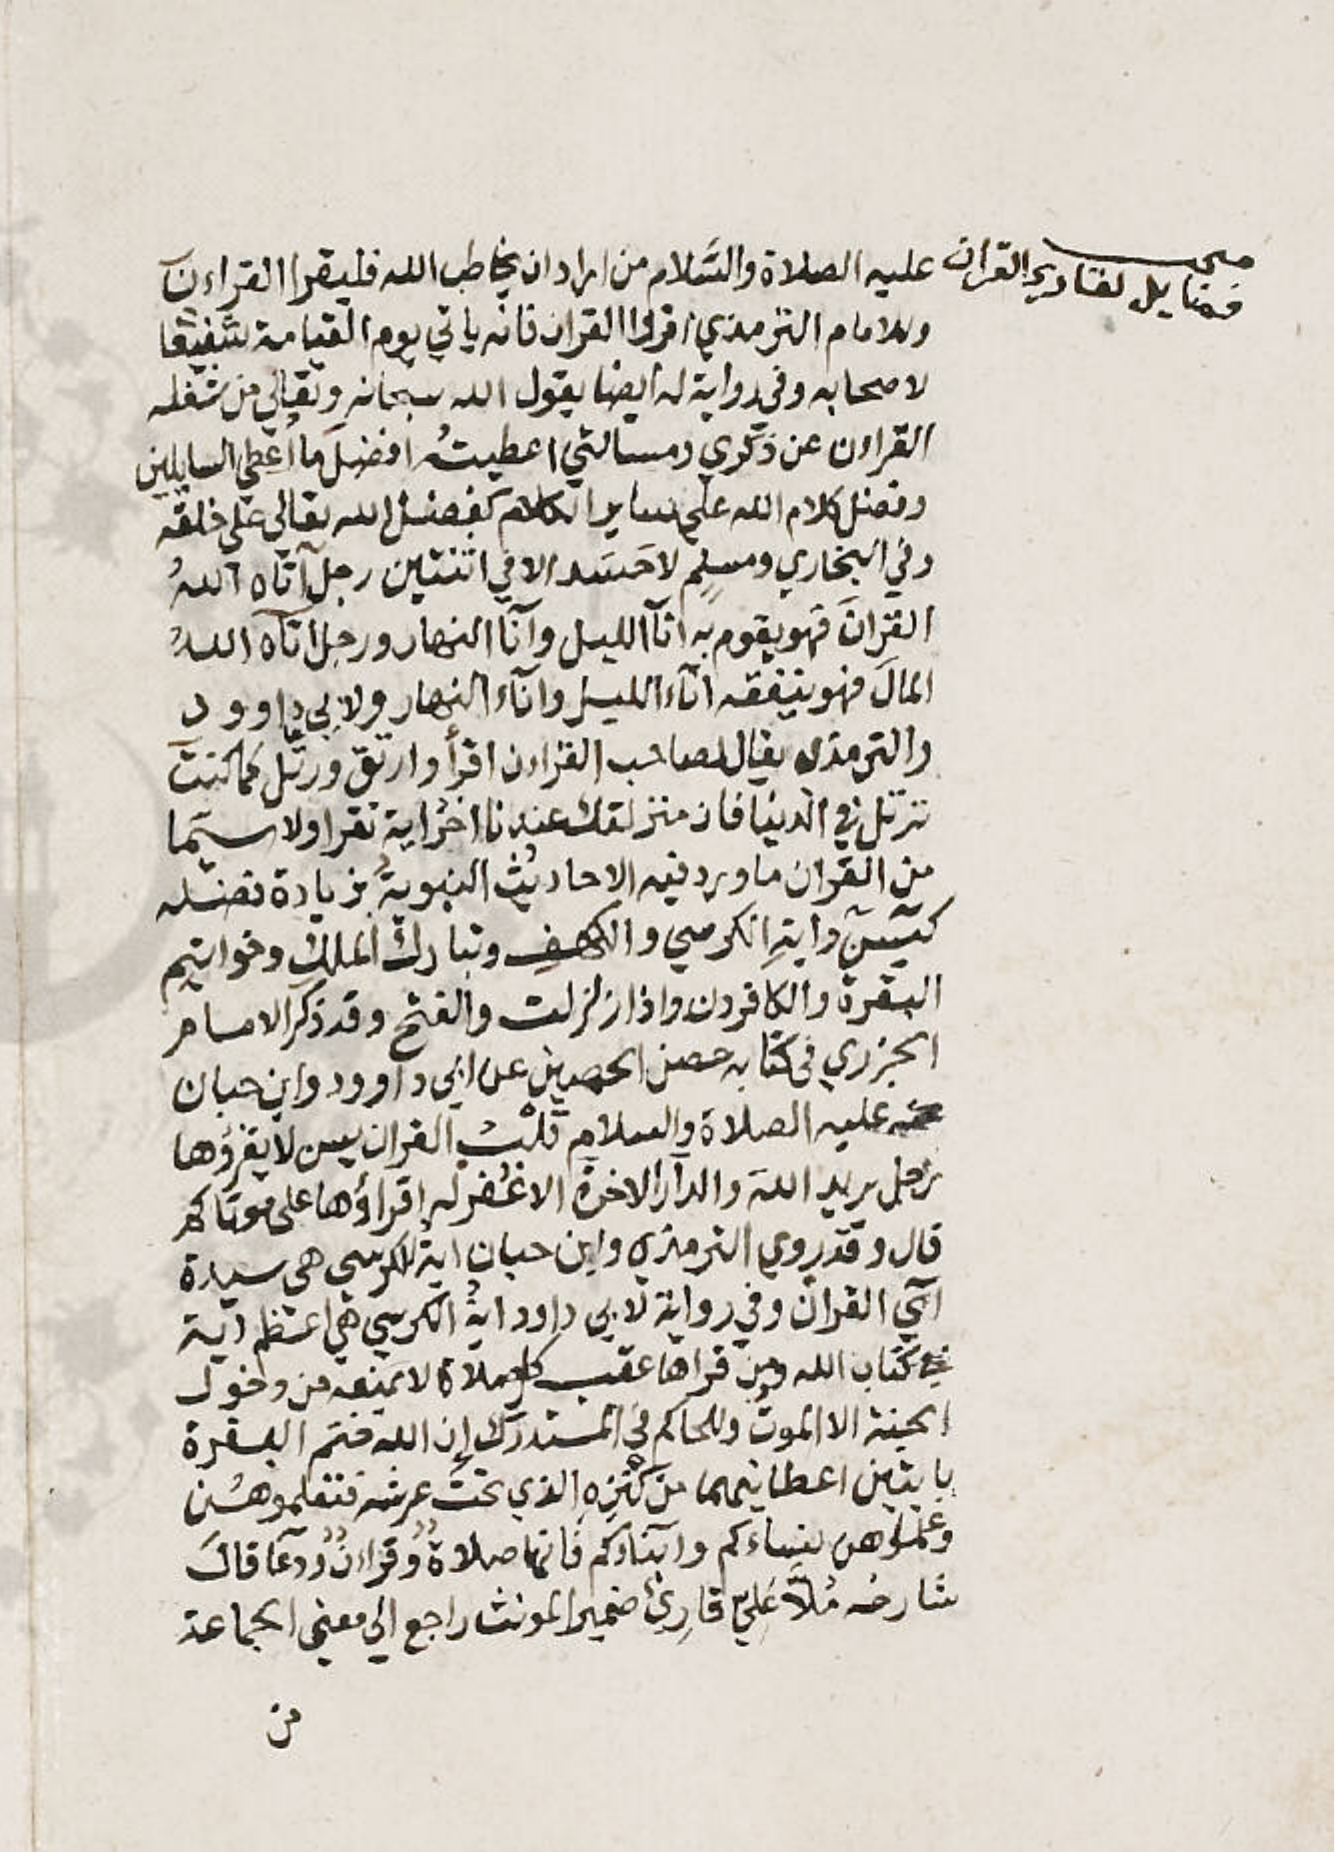 مبحث
فضايل لقاري القران
عليه الصلاة والسَّلام من اراد ان يخاطب الله فليقرا القراءن
وللامام الترمذي اقرؤا القران فانه ياتي يوم القيامة شفيعا
لاصحابه وفي رواية له ايضا يقول الله سبحانه وتعالي من شغله
القراءن عن ذكري ومسالتي اعطيتُه افضلَ ما اُعطي السايلين
وفضل كلام الله علي ساير الكلام كفضل الله تعالى على خلقه
وفي البخاري ومسلم لا حَسَد الا في اثنتين رجل آتاه اللهُ
القرانَ فهو يقوم به آنآ الليل وآنآ النهار ورجل اتاه اللهُ
المالَ فهو ينفقه انآء الليل وانآء النهار ولابي داوود
والترمذي يقال لصاحب القراءن اقرأ وارتق ورتل كما كنت
ترتل في الدنيا فان منزلتك عند اخر اية تقرا ولا سيما
من القران ما ورد فيه الاحاديث النبوية بزيادة فضله
كيٓسٓ واية الكرسي والكهف وتبارك الملك وخواتيم
البقرة والكافرون واذا زلزلت والفتح وقد ذكر الامام
الجزري في كتابه حصن الحصين عن ابي داوود وابن حبان
عنه عليه الصلاة والسلام قلبُ القران يس لا يقرؤها
رجل يريد اللهَ والدار الاخرة الا غُفر له اقراؤها على موتاكم
قال وقد روي الترمذي وابن حبان ايةُ الكرسي هي سيدة
آي القران وفي رواية لابي داوود ايةُ الكرسي هي اعظم اية
في كتاب الله ومن قراها عقب كل صلاة لا يمنعه من دخول
الجنة الا الموت وللحاكم في المستدرك ان الله ختم البقرة
بايتين اعطانيهما من كنزه الذي تحت عرشه فتعلموهن
وعلموهن نساءكم وابناءكم فانها صلاةٌ وقراءنٌ ودعآ قال
شارحه مُلاّ عَليّ قارِئ ضمير المونث راجع الي معني الجماعة
من